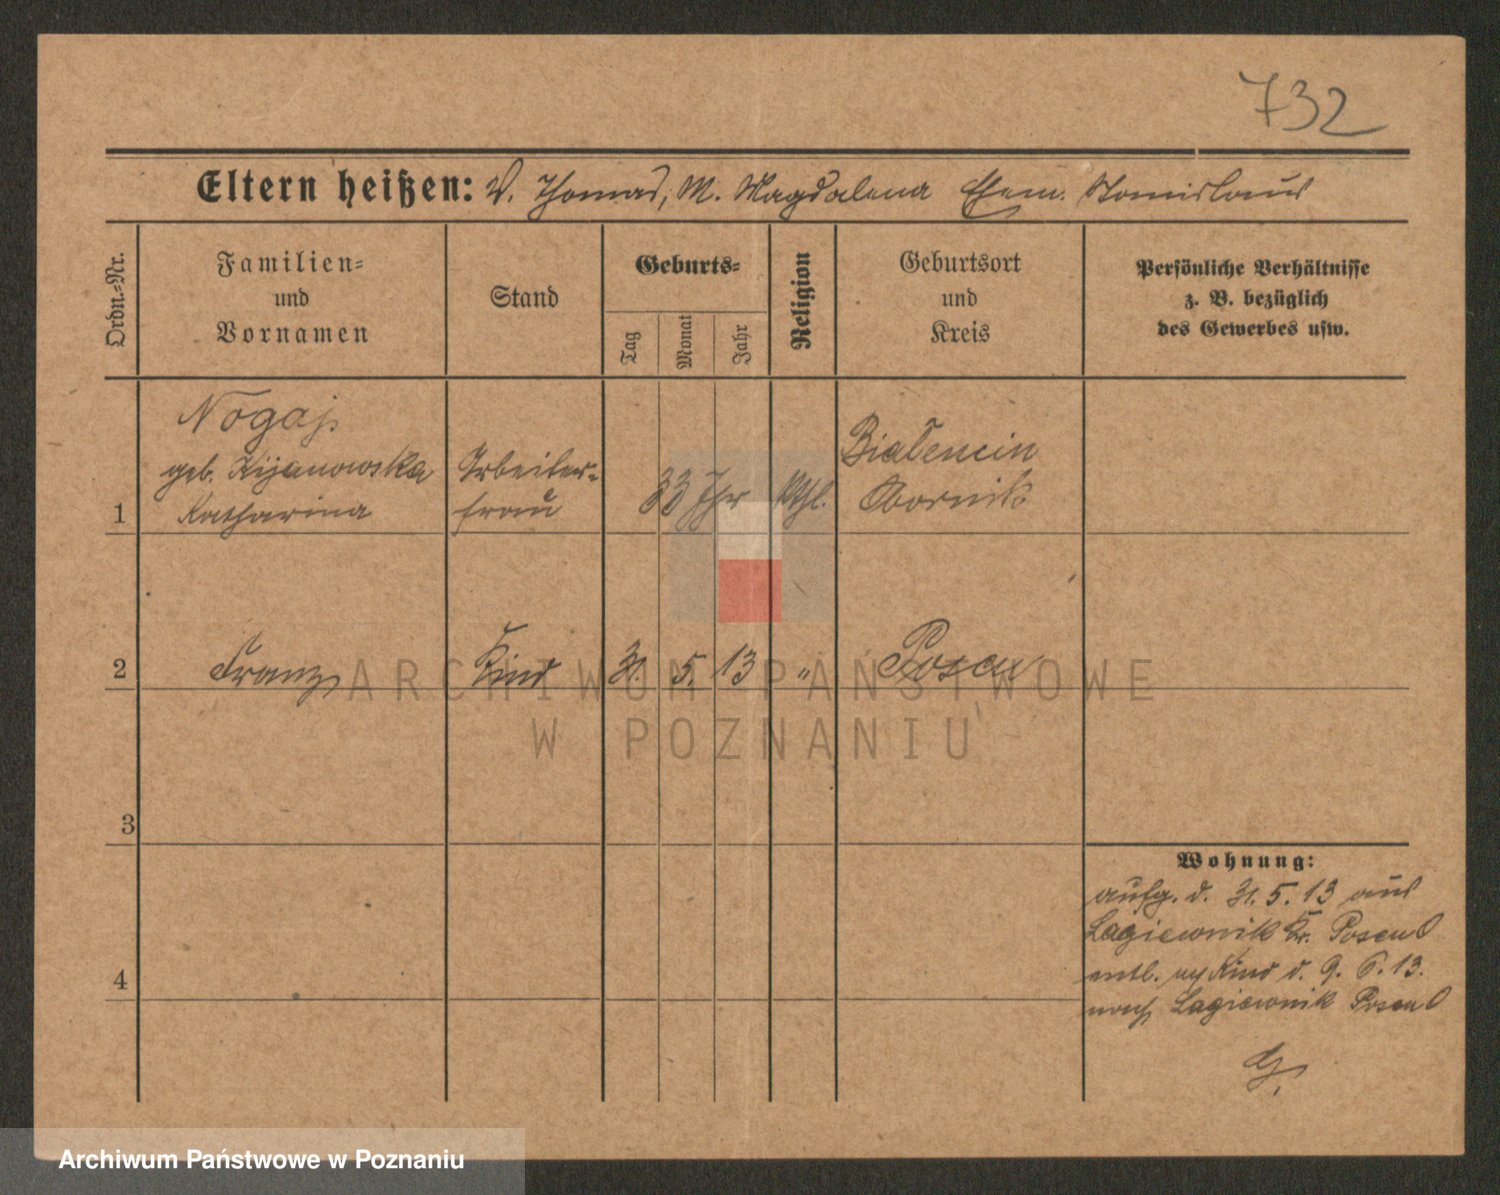 732
Eltern heißen: V. Thomas, M. Magdalena Ehem. Stanislaus
Ordn.-Nr.
Familien-
und
Vornamen
Stand
Geburts-
Tag
Monat
Jahr
Religion
Geburtsort
und
Kreis
Persönliche Verhältnisse
z. B. bezüglich
des Gewerbes usw.
Nogaj
geb. Kijanowska
Katharina
1
Arbeiter-
frau
33 Jhr
Kthl.
Bialencin
Obornik
2
Franz
Kind
31. 5. 13
"
Posen
3
4
Wohnung:
aufg. d. 31. 5. 13 aus
Lagiewnik Kr. Posen O
entl. Kind d. 9. 6. 13.
nach Lagiewnik Posen O
ARCHIWUM PAŃSTWOWE
W POZNANIU
Archiwum Państwowe w Poznaniu